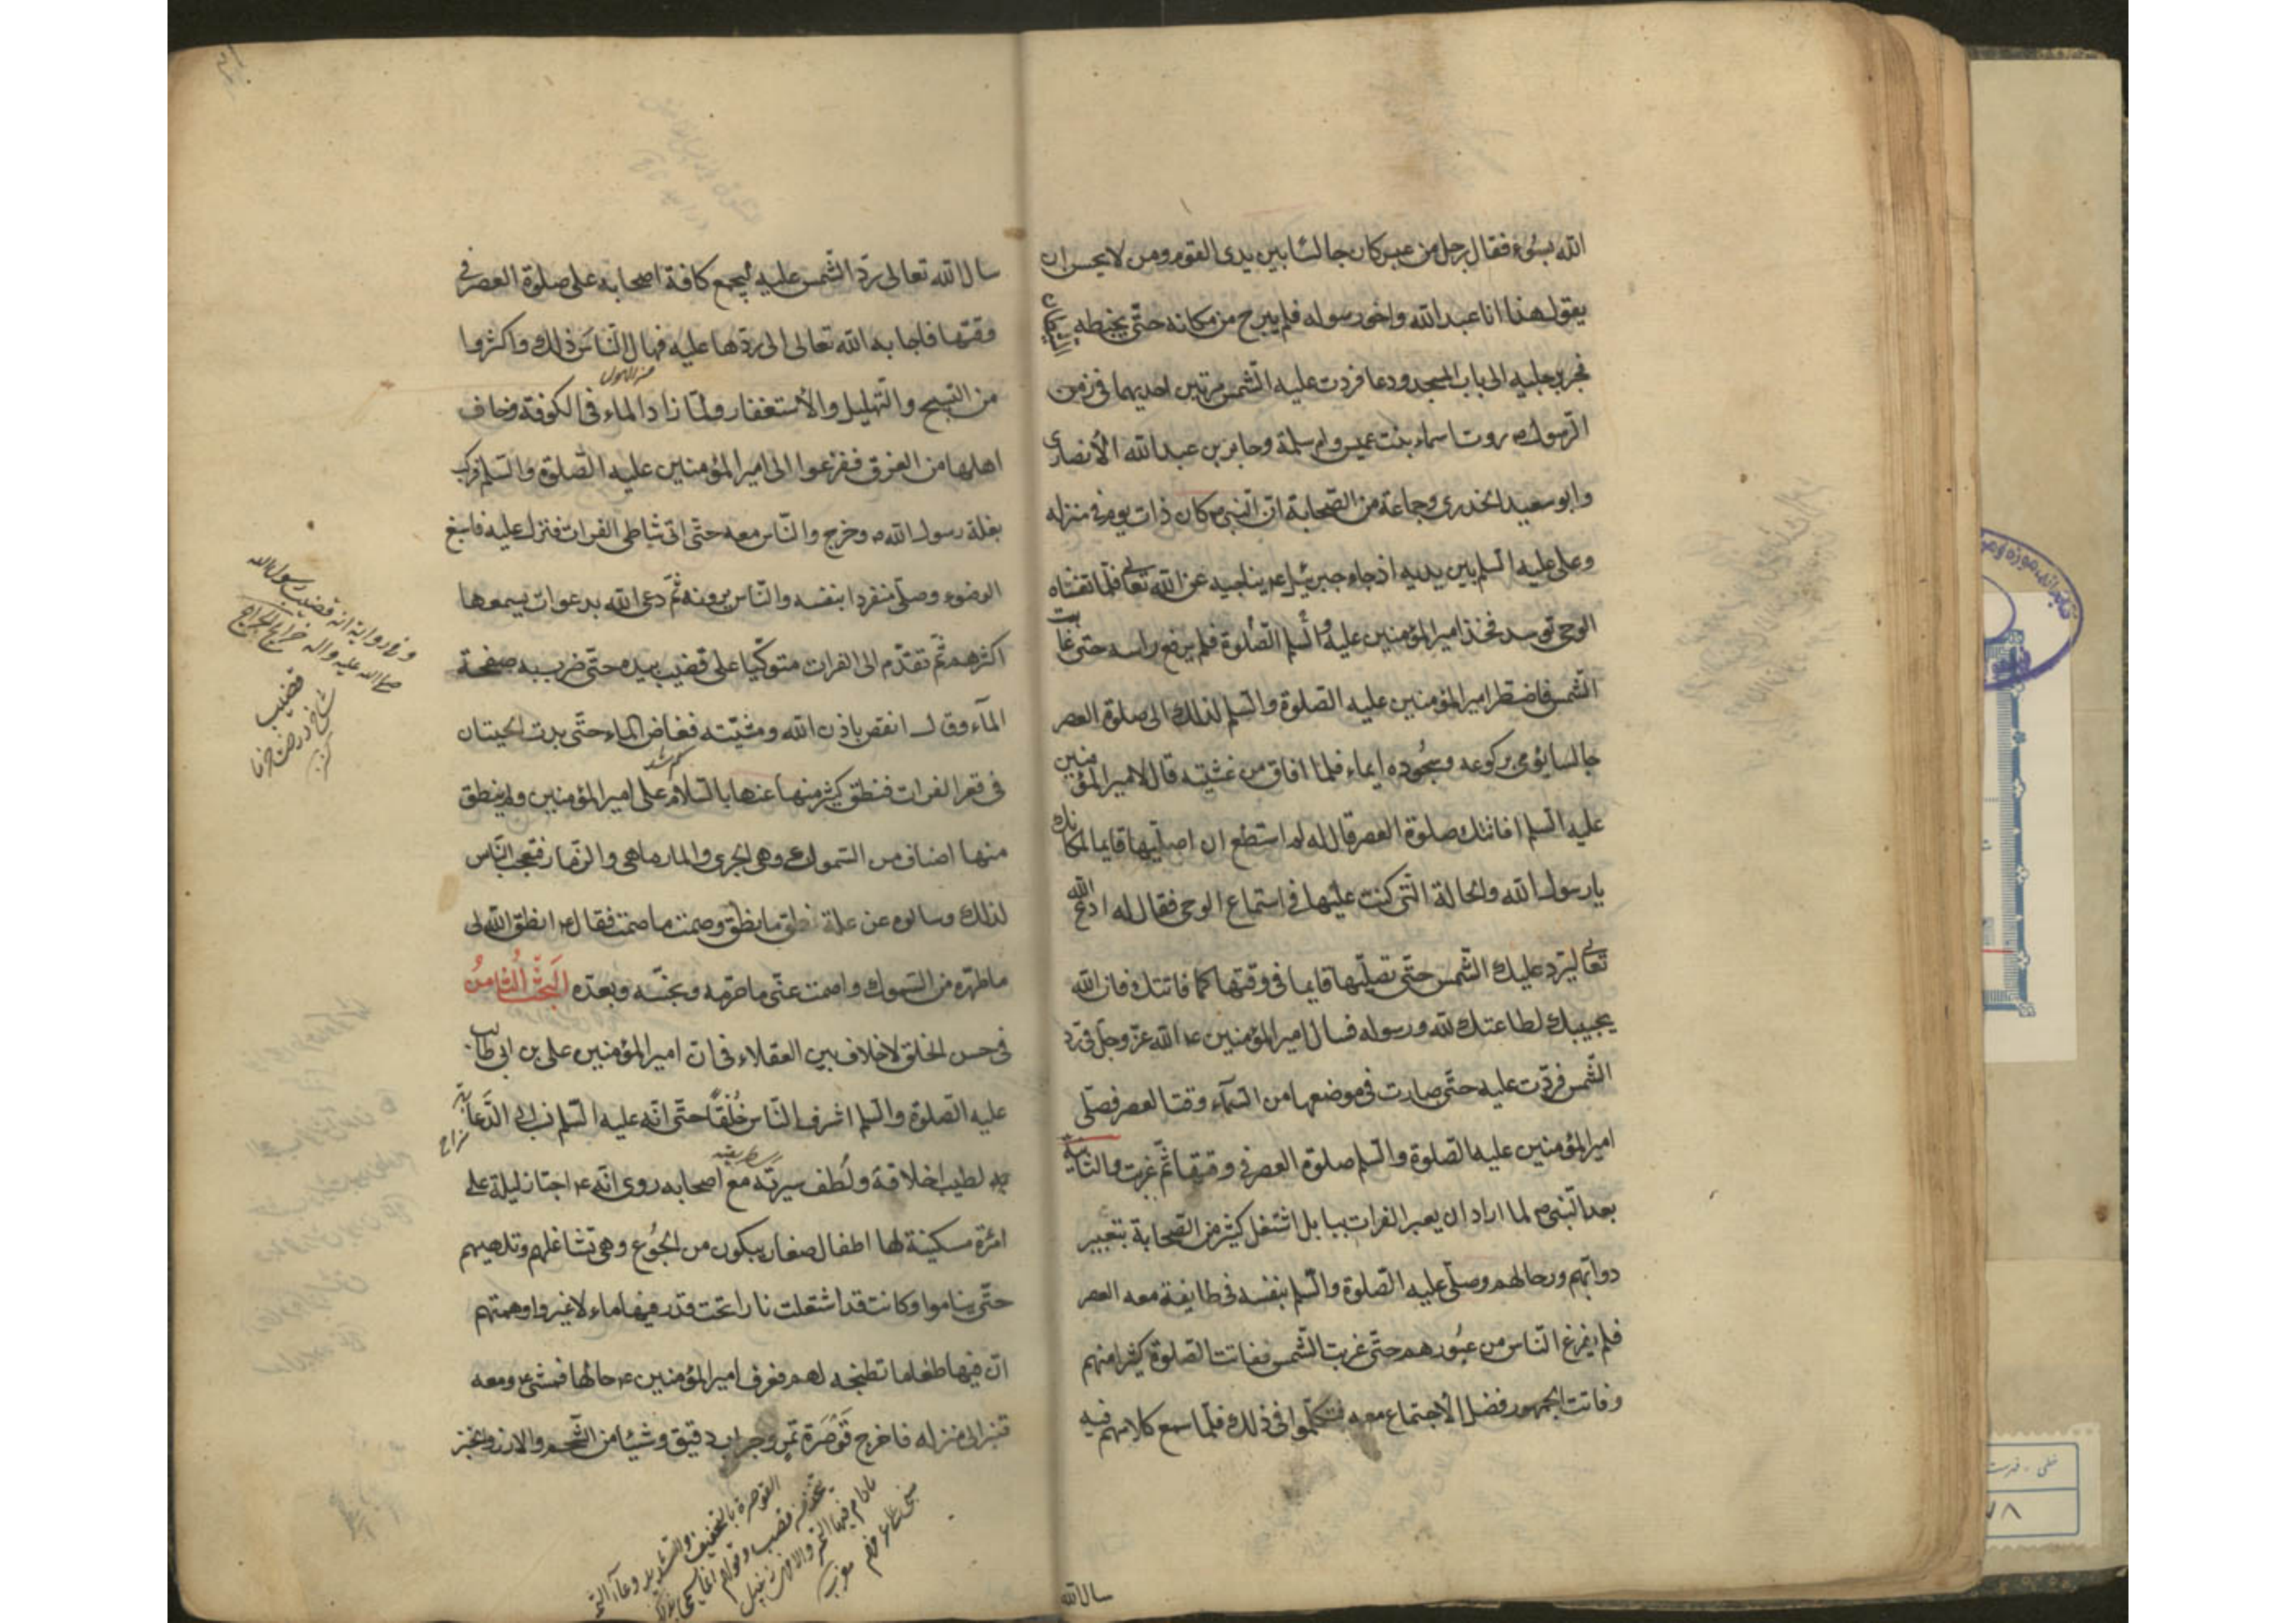 الله بسوء فقال رجل من عبس كان جالسًا بين يدى القوم ومن لا يحسن ان
يقول هذا انا عبد الله واخو رسوله فلم يبرح من مكانه حتّى يخبطه
فجر برجليه الى باب المسجد ودعا فردت عليه الشّمس مرتين احديهما فى زمن
الرّسول ص روت اسماء بنت عميس وام سلمة وجابر بن عبد الله الأنصارى
وابو سعيد الخدرى وجماعة من الصّحابة ان النّبى ص كان ذات يوم فى منزله
وعلى عليه السّلم بين يديه اذ جاءه جبرئيل ع يناجيه عن الله تعالى فلمّا تغشّاه
الوحى توسد فخذ امير المؤمنين عليه السّلم والصّلوة فلم يرفع راسه حتى غابت
الشّمس فاضطر امير المؤمنين عليه الصّلوة والسّلم لذلك الى صلوة العصر
جالسا يؤمى بركوعه وسجُوده ايماء فلمّا افاق من غشيته قال لامير المؤمنين
عليه السّلم افاتتك صلوة العصر قال له لم استطع ان اصلّيها قايما لمكانك
يا رسول الله والحالة الّتى كنت عليها فى استماع الوحى فقال له ادع الله
تعالى ليرد عليك الشّمس حتّى تصلّيها قايما فى وقتها كما فاتتك فان الله
يجيبك لطاعتك لله ورسوله فسال امير المؤمنين ع الله عزّ وجلّ فى ردّ
الشّمس فردّت عليه حتّى صارت فى موضعها من السّمآء وقت العصر فصلّى
امير المؤمنين عليه الصّلوة والسّلم صلوة العصر فى وقتها ثمّ غربت والثّانية
بعد النّبى ص لما اراد ان يعبر الفرات ببابل اشتغل كثير من الصّحابة بتعبير
دوابّهم ورحالهم وصلّى عليه الصّلوة والسّلم بنفسه فى طايفة معه العصر
فلم يفرغ النّاس من عبُورهم حتّى غربت الشّمس ففاتت الصّلوة كثيرا منهم
وفاتت الجمهور فضل الأجتماع معه فتكلّموا فى ذلك فلمّا سمع كلامهم فيه
سال الله
سال الله تعالى ردّ الشّمس عليه ليجمع كافة اصحابه على صلوة العصر فى
وقتها فاجابه الله تعالى الى ردّها عليه فهال النّاس ذلك واكثروا
من التسبيح والتّهليل والأستغفار ولمّا زاد الماء فى الكوفة وخاف
اهلها من الغرق ففزعوا الى امير المؤمنين عليه الصّلوة والسّلم فركب
بغلة رسول الله ص وخرج والنّاس معه حتّى اتى شاطى الفرات فنزل عليه فاسبغ
الوضوء وصلّى منفردا بنفسه والنّاس يرونه ثمّ دعى الله بدعوات يسمعها
اكثرهم ثمّ تقدّم الى الفرات متوكّيا على قضيب بيده حتّى ضرب به صفحة
المآء وقال انقص باذن الله ومشيّته فغاض الماء حتّى بدت الحيتان
فى قعر الفرات فنطق كثير منها عنها بالسّلام على امير المؤمنين ولم ينطق
منها اصناف من السّموك وهى الجرى والمارماهى والزّمار فتعجب النّاس
لذلك وسالوه عن علة نطق ما نطق وصمت ما صمت فقال ع انطق الله لى
ما طهّره من السّموك واصمت عنّى ما حرّمه ونجسّه وبعدّه البَحثُ الثامنُ
فى حسن الخلق لا خلاف بين العقلاء فى ان امير المؤمنين على بن ابى طالب
عليه الصّلوة والسّلم اشرف النّاس خُلقًا حتّى انّه عليه السّلم نسب الى الدّعابة
لطيب اخلاقه ولُطف سيرته مع اصحابه روى انّه ع اجتاز ليلة على
امرْة مسكينة لها اطفال صغار يبكون من الجُوع وهى تشاغلهم وتلهيهم
حتّى يناموا وكانت قد اشتعلت نارا تحت قدر فيها ماء لا غير واوهمتهم
انّ فيها طعاما تطبخه لهم فعرف امير المؤمنين ع حالها فمشى ع ومعه
قنبر الى منزله فاخرج قَوصَرة تمرٍ وجراب دقيق وشيئا من الشّحم والارز والخبز
وفى رواية انه قضيب رسول الله
صلى الله عليه واله
قضيب
القوصرة بالتخفيف والتشديد وعاء التمر
يتخذ من قصب